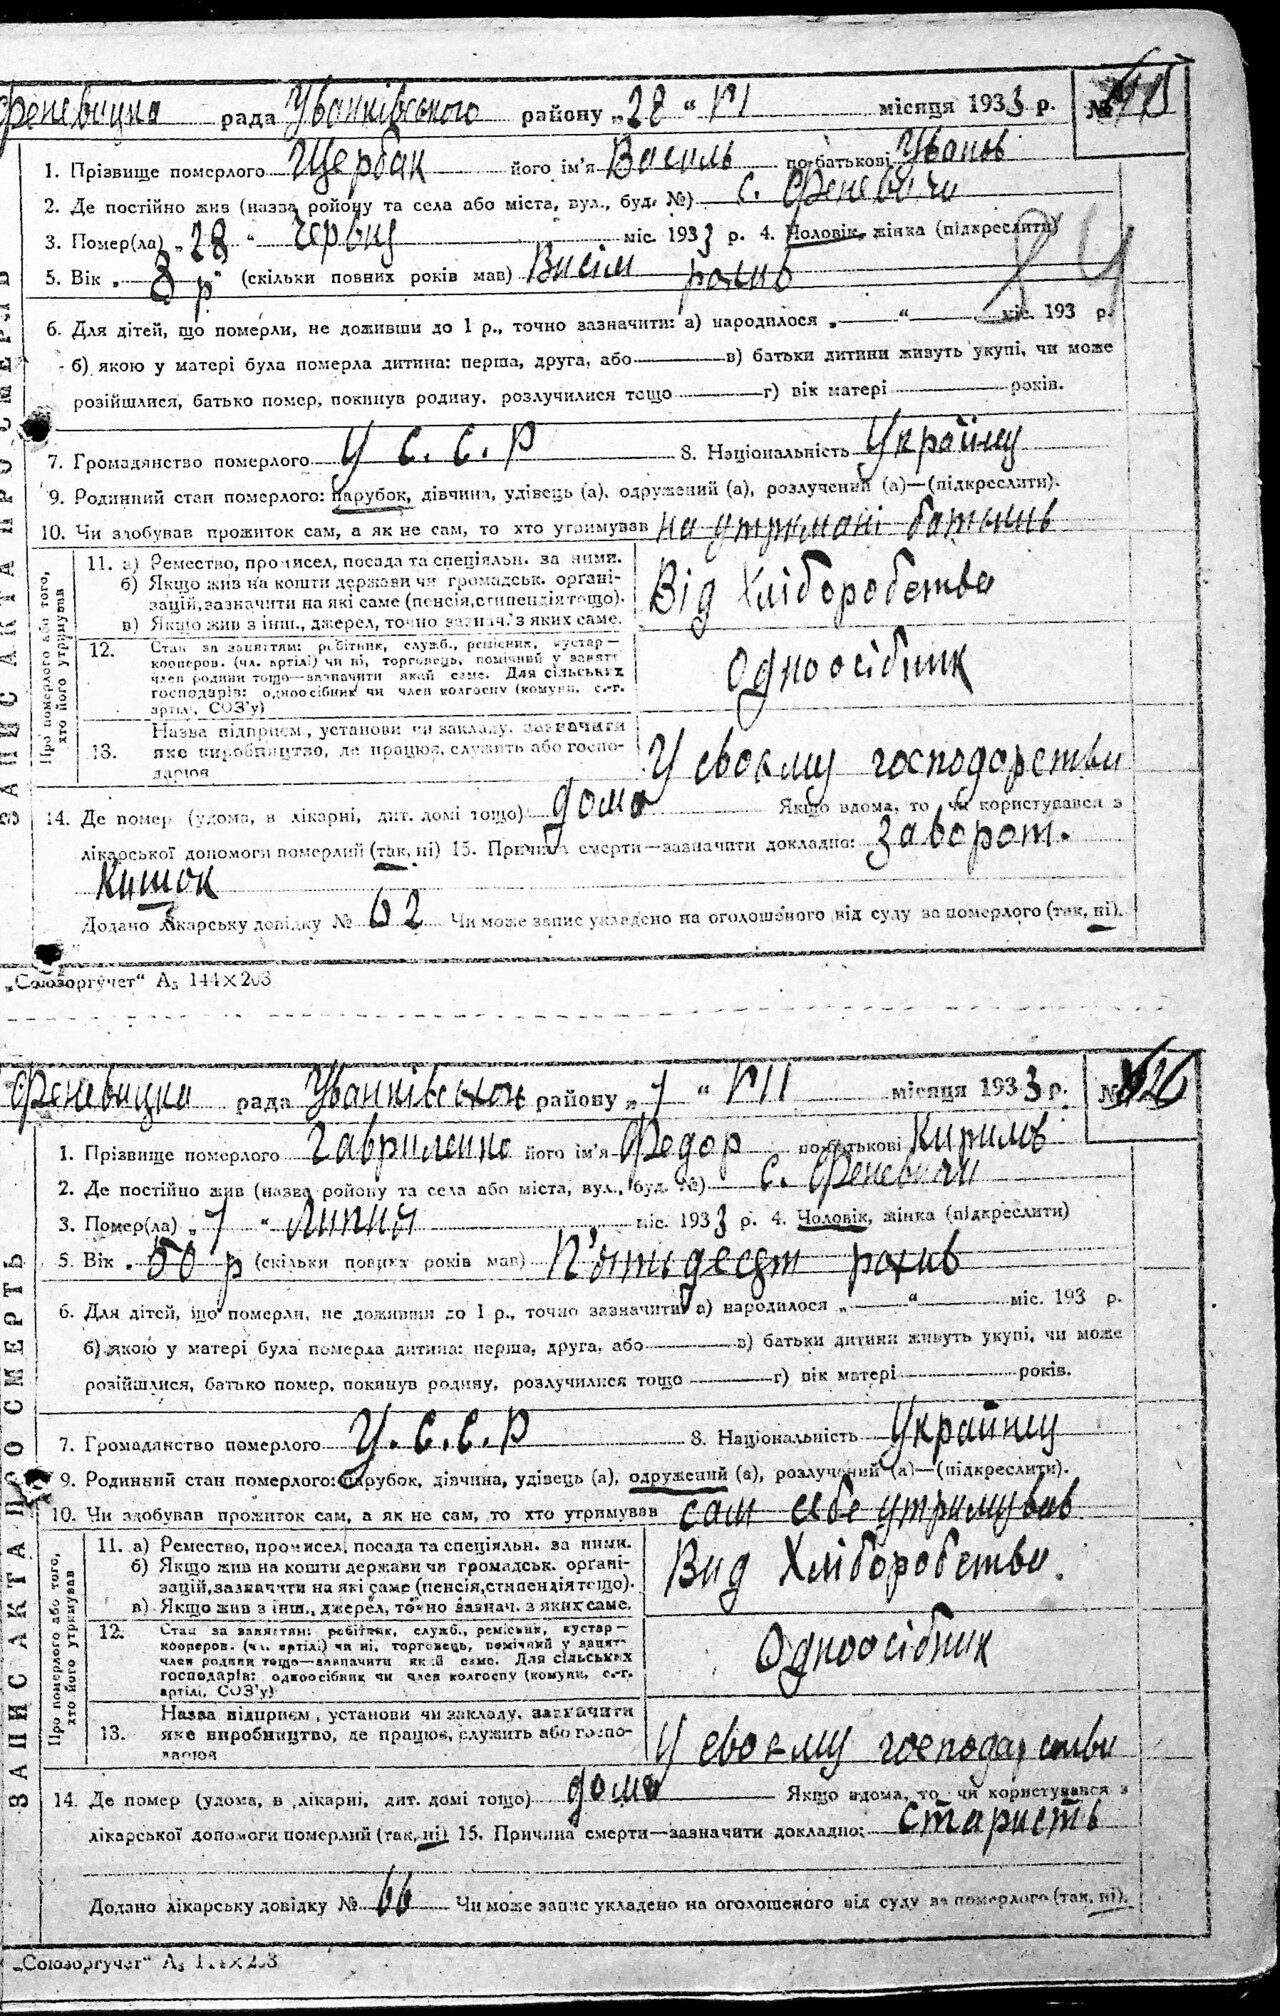 Феневицка рада Іванківського району „28" VI місяця 1933 р. №
1. Прізвище померлого Щербак його ім'я Василь по-батькові Іванов
2. Де постійно жив (назва ройону та села або міста, вул., буд. №) с. Феневичи
3. Помер(ла) „28" червня міс. 1933 р. 4. Чоловік, жінка (підкреслити)
84
5. Вік „8 р" (скільки повних років мав) Висім рокив
6. Для дітей, що померли, не доживши до 1 р., точно зазначити: а) народилося „—" — міс. 193 р.
б) якою у матері була померла дитина: перша, друга, або — в) батьки дитини живуть укупі, чи може
розійшлися, батько помер, покинув родину, розлучилися тощо — г) вік матері — років.
7. Громадянство померлого У С. С. Р 8. Національність Українц
9. Родинний стан померлого: парубок, дівчина, удівець (а), одружений (а), розлучений (а)—(підкреслити).
10. Чи здобував прожиток сам, а як не сам, то хто утримував на утримані батькив
ЗАПИС АКТА ПРО СМЕРТЬ
Про померлого або того, хто його утримував
11. а) Ремество, промисел, посада та спеціяльн. за ними.
б) Якщо жив на кошти держави чи громадськ. органі-
зацій, зазначити на які саме (пенсія, стипендія тощо).
в) Якщо жив з інш., джерел, точно зазнач. з яких саме.
Від Хліборобства
12. Стан за заняттям: робітник, служб., ремісник, кустар—
кооперов. (чл. артілі) чи ні, торговець, помічний у занятт
член родини тощо—зазначити який саме. Для сільських
господарів: одноосібник чи член колгоспу (комуни, с.-г.
артілі, СОЗ'у)
Одноосібник
13. Назва підприєм., установи чи закладу, зазначити
яке виробництво, де працює, служить або госпо-
дарює
У своєму господарстви
14. Де помер (удома, в лікарні, дит. домі тощо) дома Якщо вдома, то чи користувався з
лікарської допомоги померлий (так, ні) 15. Причина смерти—зазначити докладно: Заворот.
Кишок
Додано лікарську довідку № 62 Чи може запис укладено на оголошеного від суду за померлого (так, ні).
„Союзоргучет" А5 144×203
Феневицка рада Іванківського району „7" VII місяця 1933 р. №
1. Прізвище померлого Гавриленко його ім'я Федор по-батькові Кирилов
2. Де постійно жив (назва ройону та села або міста, вул., буд. №) с. Феневичи
3. Помер(ла) „7" Липня міс. 1933 р. 4. Чоловік, жінка (підкреслити)
5. Вік „50 р (скільки повних років мав) П'ятьдесят рокив
6. Для дітей, що померли, не доживши до 1 р., точно зазначити а) народилося „—" — міс. 193 р.
б) якою у матері була померла дитина: перша, друга, або — в) батьки дитини живуть укупі, чи може
розійшлися, батько помер, покинув родину, розлучилися тощо — г) вік матері — років.
7. Громадянство померлого У. С. С. Р 8. Національність Українц
9. Родинний стан померлого: парубок, дівчина, удівець (а), одружений (а), розлучений (а)—(підкреслити).
10. Чи здобував прожиток сам, а як не сам, то хто утримував сам себе утримував
ЗАПИС АКТА ПРО СМЕРТЬ
Про померлого або того, хто його утримував
11. а) Ремество, промисел, посада та спеціяльн. за ними.
б) Якщо жив на кошти держави чи громадськ. органі-
зацій, зазначити на які саме (пенсія, стипендія тощо).
в) Якщо жив з інш., джерел, точно зазнач. з яких саме.
Вид Хліборобства.
12. Стан за заняттям: робітник, служб., ремісник, кустар—
кооперов. (чл. артілі) чи ні, торговець, помічний у занятт
член родини тощо—зазначити який саме. Для сільських
господарів: одноосібник чи член колгоспу (комуни, с.-г.
артілі, СОЗ'у)
Одноосібник
13. Назва підприєм., установи чи закладу, зазначити
яке виробництво, де працює, служить або госпо-
дарює
У своєму господарстви
14. Де помер (удома, в лікарні, дит. домі тощо) дома Якщо вдома, то чи користувався з
лікарської допомоги померлий (так, ні) 15. Причина смерти—зазначити докладно: старисть
Додано лікарську довідку № 66 Чи може запис укладено на оголошеного від суду за померлого (так, ні).
„Союзоргучет" А5 144×203